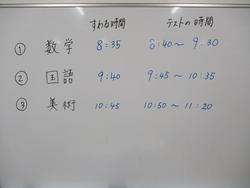 すわる時間 テストの時間
① 数学 8:35 8:40〜 9.30
② 国語 9:40 9:45 〜 10:35
③ 美術 10:45 10:50 〜 11:20